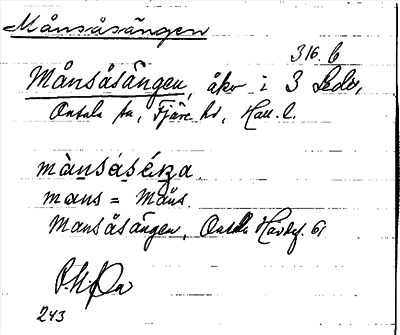 Månsåsängen
316. b
Månsåsängen, åkr i 3 Leds,
Onsala sn, Fjäre hd, Hall. l.
mànsåséŋa
mans = Måns.
Mansåsängen, Onsala Hävdf. 61
243